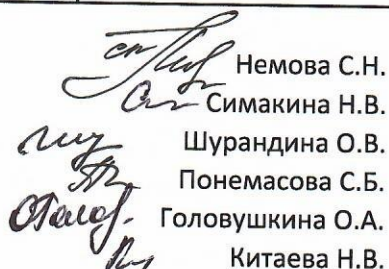 Немова С.Н.
Симакина Н.В.
Шурандина О.В.
Понемасова С.Б.
Головушкина О.А.
Китаева Н.В.